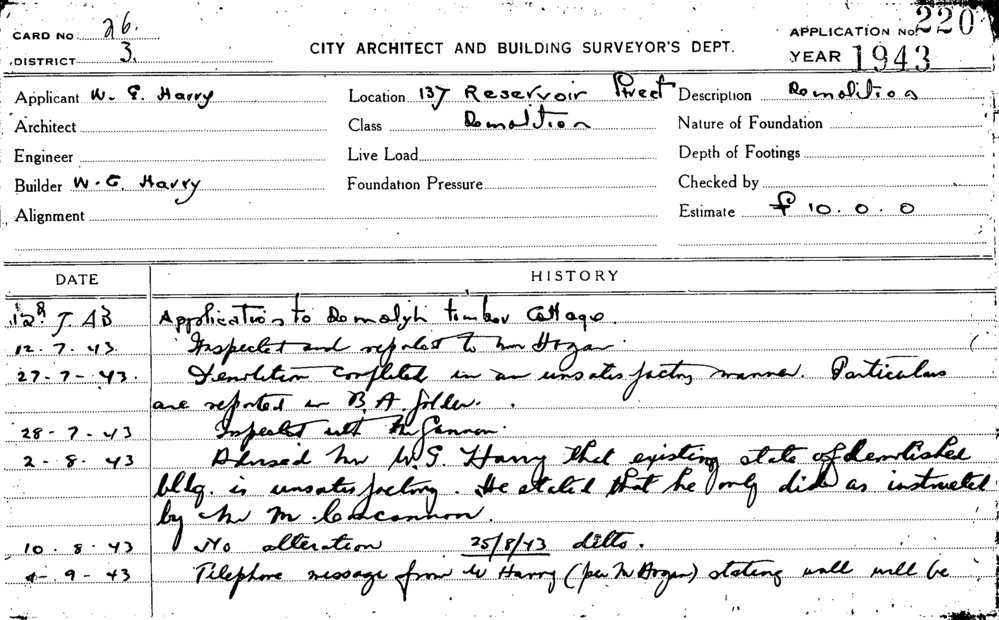 CARD No 26.
DISTRICT 3.
CITY ARCHITECT AND BUILDING SURVEYOR'S DEPT.
APPLICATION No. 220
YEAR 1943
Applicant W. E. Harry Location 137 Reservoir Street Description Demolition
Architect Class Demolition Nature of Foundation
Engineer Live Load Depth of Footings
Builder W. E. Harry Foundation Pressure Checked by
Alignment Estimate £ 10. 0. 0
DATE HISTORY
12. 7. 43 Application to Demolish timber Cottage.
12. 7. 43. Inspected and reported to Mr Hogan.
27-7-43. Demolition completed in an unsatisfactory manner. Particulars
are reported in B. A. folder.
28-7-43 Inspected with Mr Gannon.
2-8-43 Advised Mr W. G. Harry that existing state of demolished
bldg. is unsatisfactory. He stated that he only did as instructed
by Mr M. Concannon.
10. 8. 43 No alteration 25/8/43 ditto.
4-9-43 Telephone message from Mr Harry (per Mr Hogan) stating wall will be